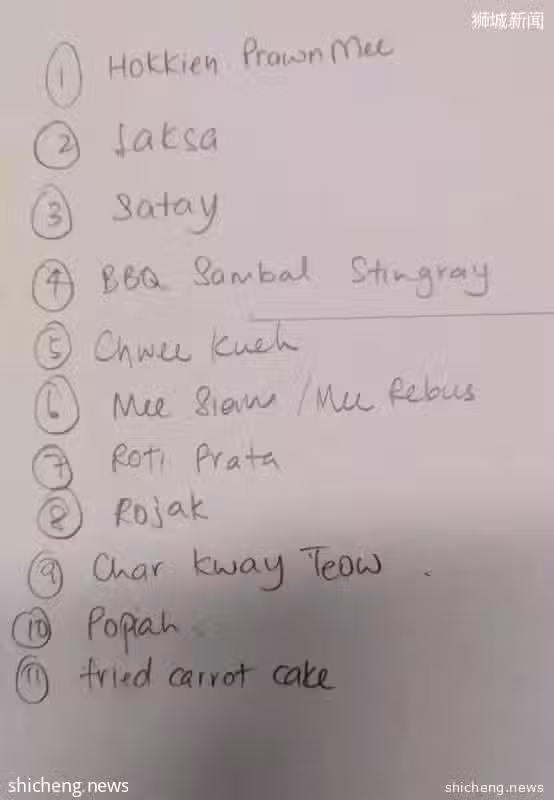 狮城新闻
1 Hokkien Prawn Mee
2 Laksa
3 Satay
4 BBQ Sambal Stingray
5 Chwee Kueh
6 Mee Siam / Mee Rebus
7 Roti Prata
8 Rojak
9 Char Kway Teow .
10 Popiah
11 fried carrot cake
shicheng.news
shicheng.news